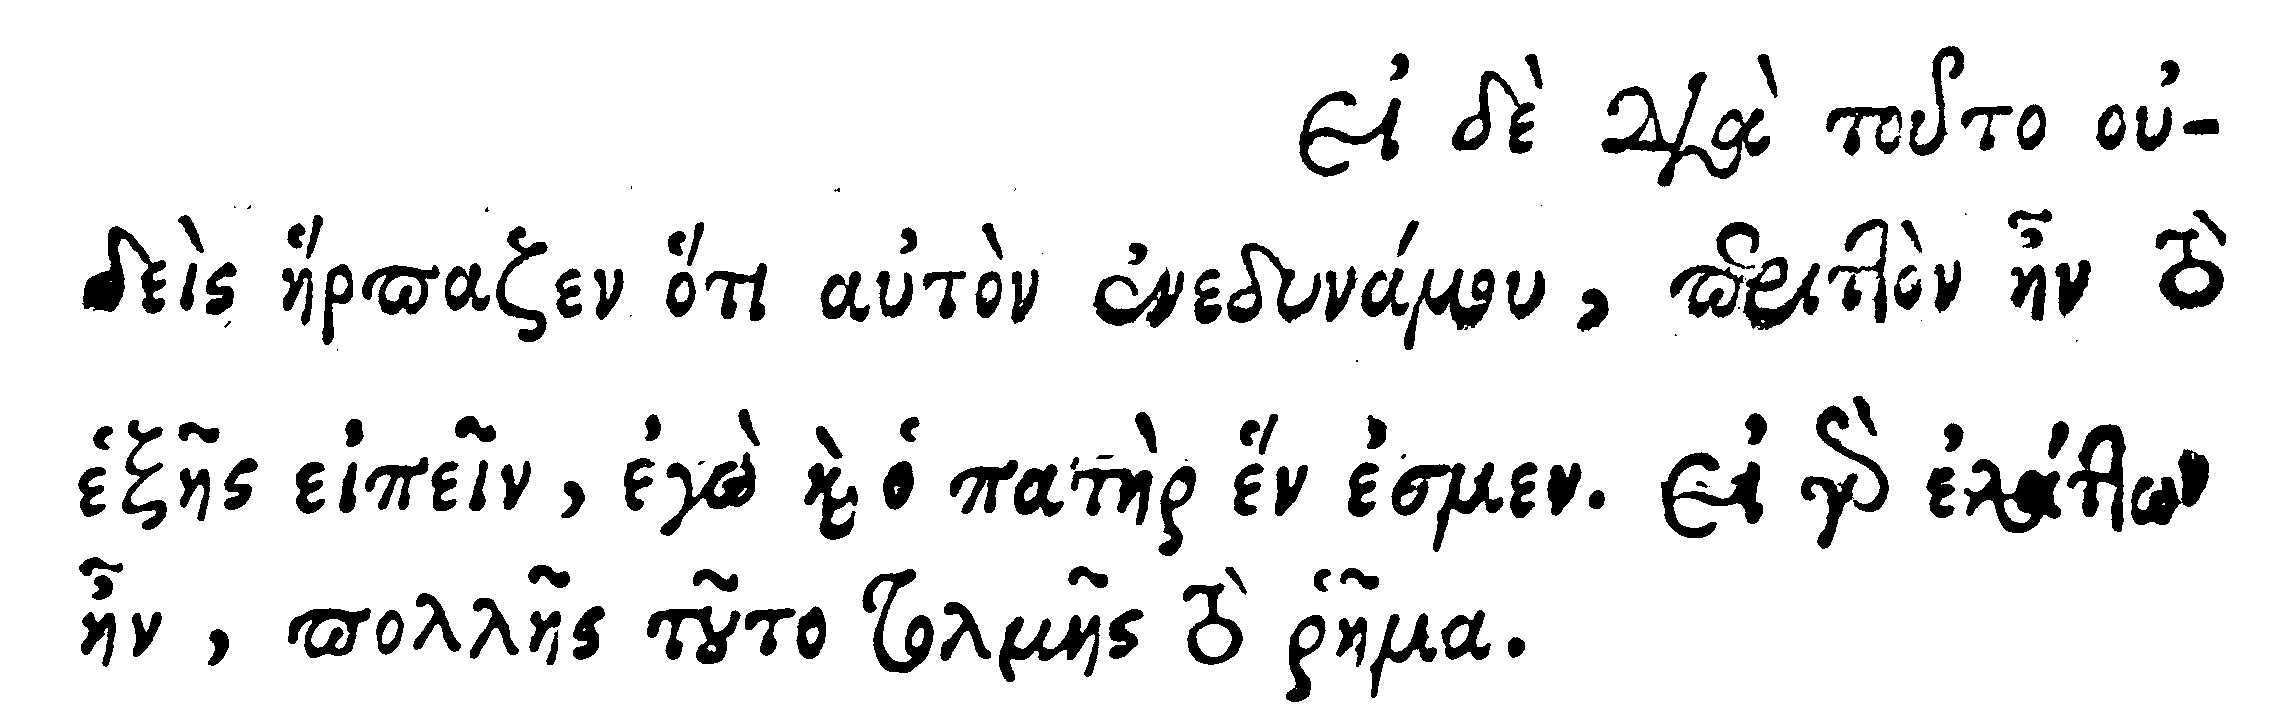 εἰ δὲ διὰ τοῦτο οὐ-
δεὶς ἥρπαζεν ὅτι αὐτὸν ἐνεδυνάμου, περιττὸν ἦν τὸ
ἑξῆς εἰπεῖν, ἐγὼ καὶ ὁ πατὴρ ἕν ἐσμεν. εἰ γὰρ ἐλάττων
ἦν, πολλῆς τοῦτο τόλμης τὸ ῥῆμα.